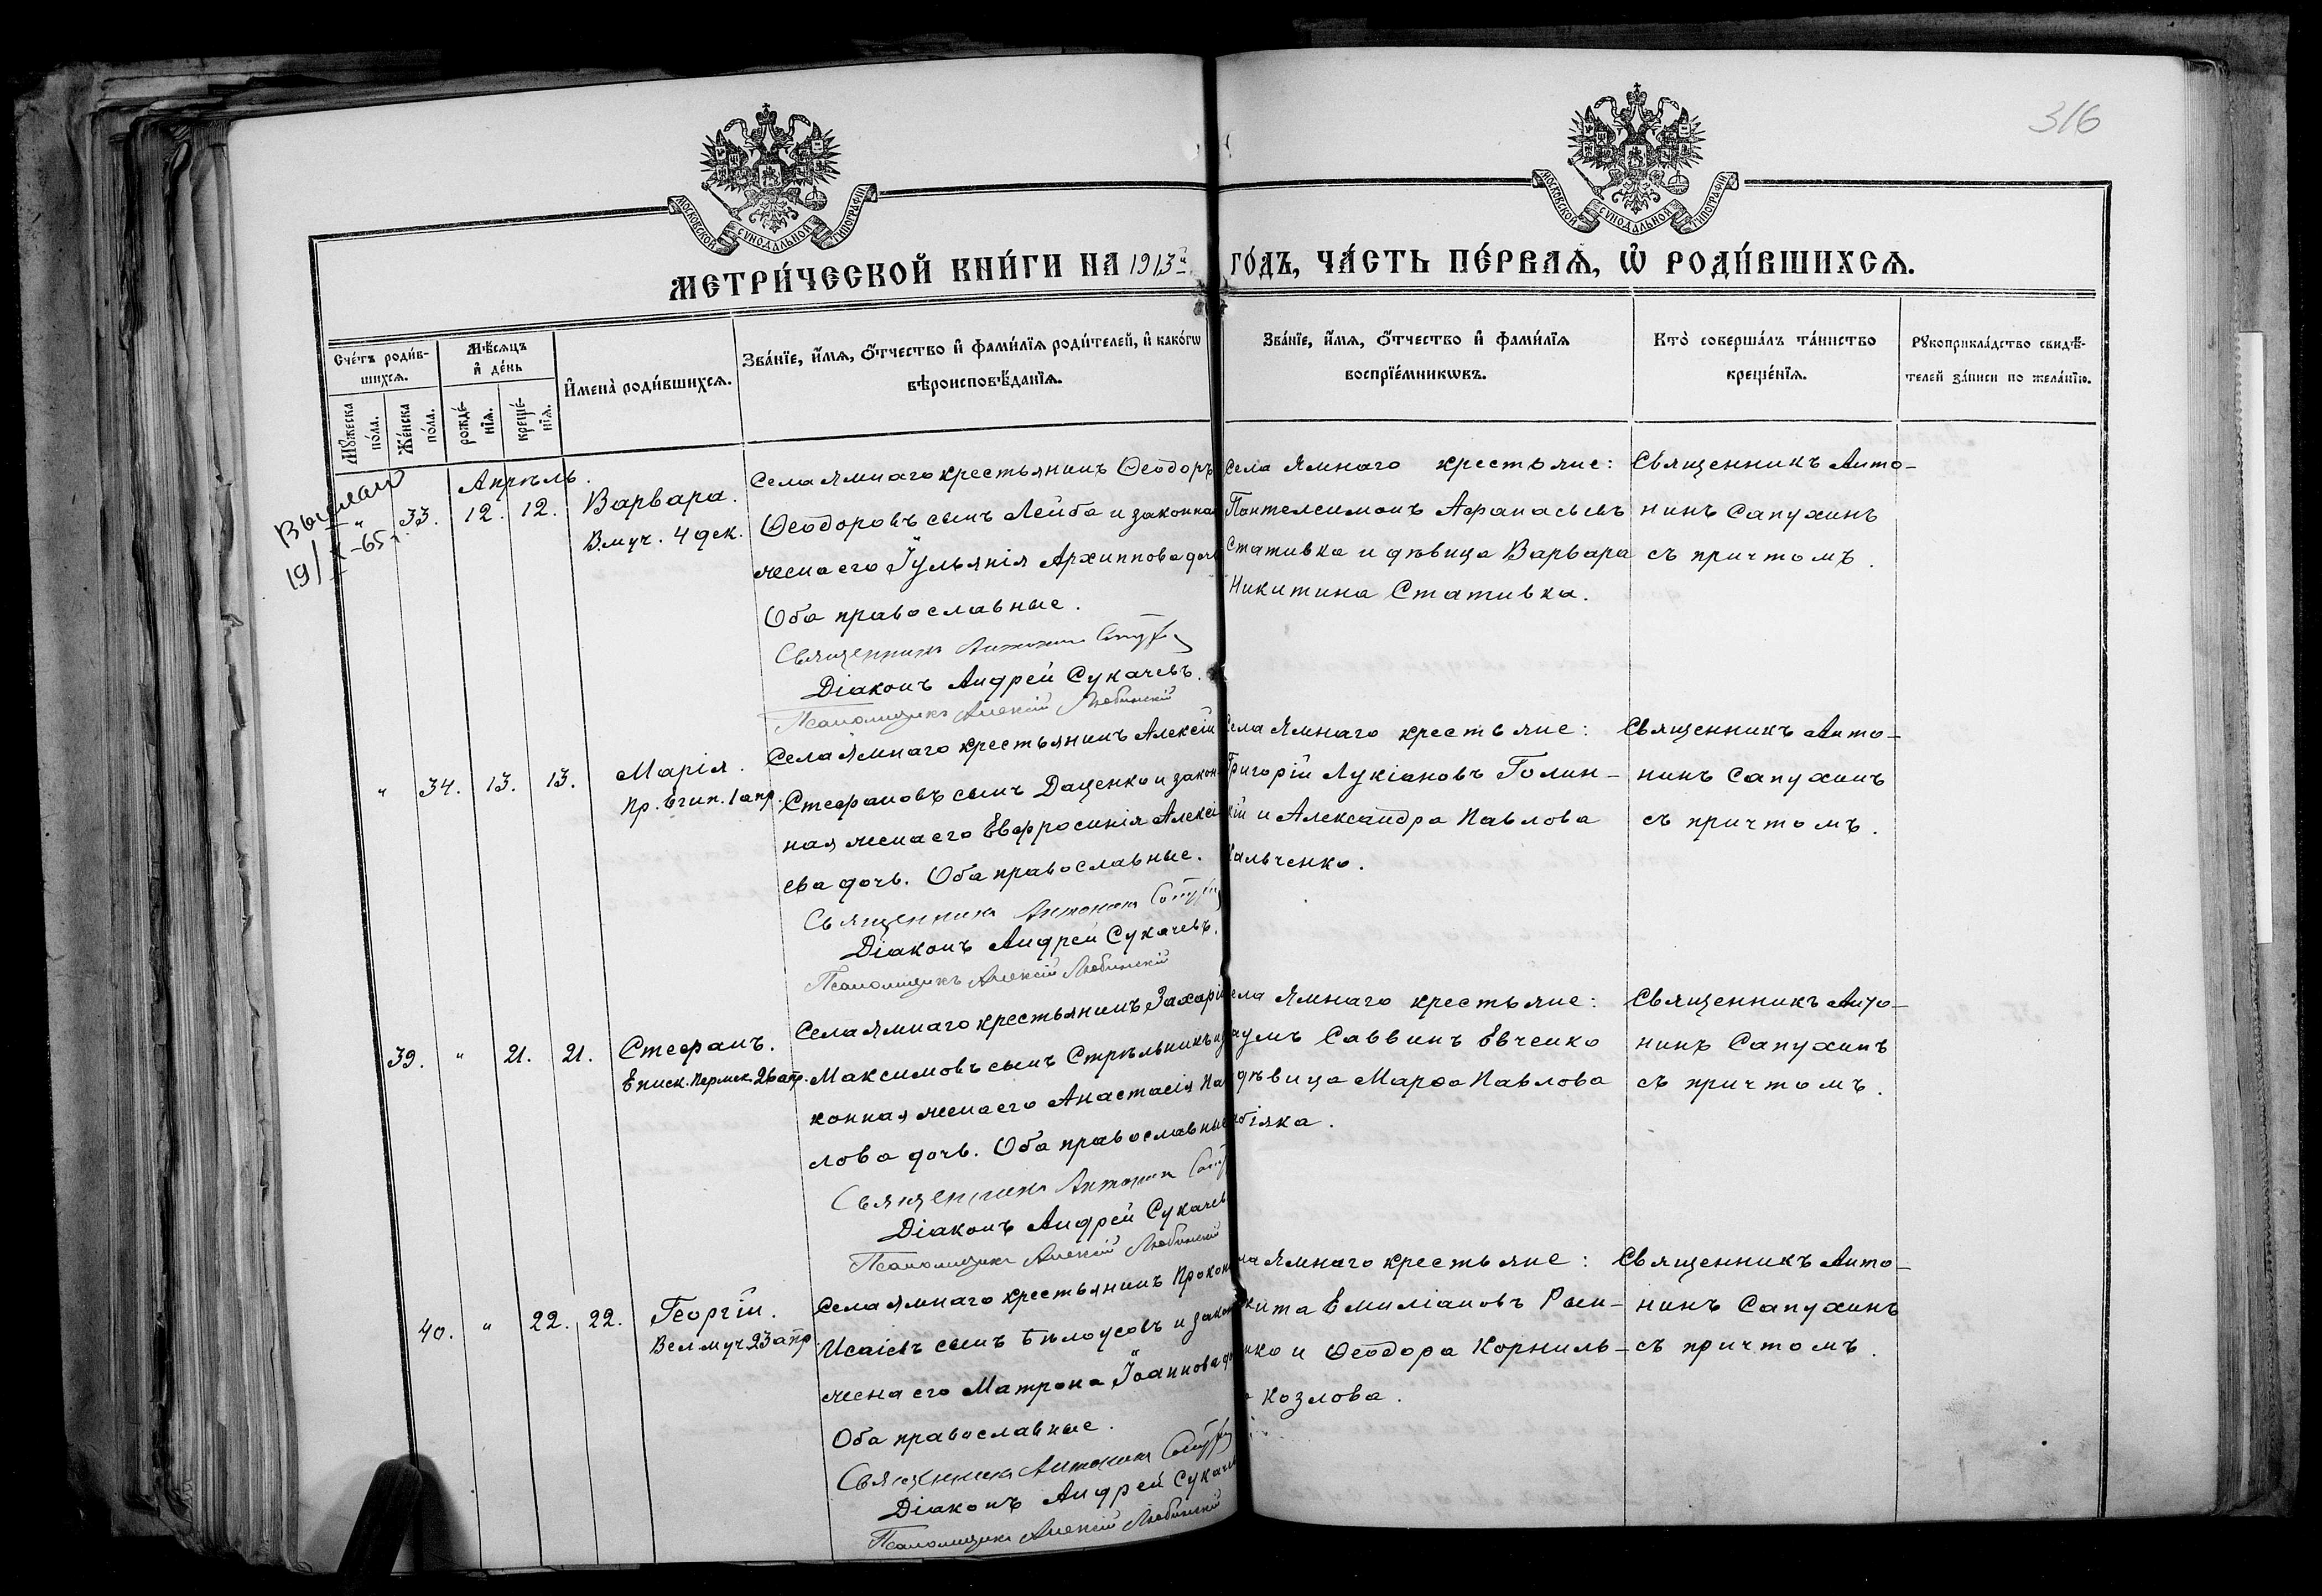 316
МОСКОВСКОЙ СѴНОДАЛЬНОЙ ТИПОГРАФІИ
МОСКОВСКОЙ СѴНОДАЛЬНОЙ ТИПОГРАФІИ
МЕТРИ́ЧЕСКОЙ КНИ́ГИ НА 1913й ГО́ДЪ, ЧА́СТЬ ПЕ́РВАѦ, Ѡ҆ РОДИ́ВШИХСѦ.
Сче́тъ роди́в-
шихсѧ.
Мꙋ́жеска по́ла.
Же́нска по́ла.
Мѣ́сѧцъ
и҆ де́нь
рожде́-
нїѧ.
креще́-
нїѧ.
И҆мена̀ роди́вшихсѧ.
Зва́нїе, и҆́мѧ, ѻ҆́тчество и҆ фами́лїѧ роди́телей, и҆ како́гѡ
вѣроисповѣ́данїѧ.
Зва́нїе, и҆́мѧ, ѻ҆́тчество и҆ фами́лїѧ
воспрїе́мникѡвъ.
Кто̀ соверша́лъ та́инство
креще́нїѧ.
Рꙋкоприкла́дство свидѣ́-
телей за́писи по жела́нїю.
19/X-65г.
Апрѣль.
" 33. 12. 12.
Варвара.
В.муч. 4 дек.
Села Ямнаго крестьянинъ Ѳеодоръ
Ѳеодоровъ сынъ Лейба и законная
жена его Іульянія Архиппова дочь
Оба православные.
Священникъ Антонинъ
Діаконъ Андрей Сукачевъ.
Псаломщикъ Алексій Любинскій
Села Ямнаго крестьяне:
Пантелеимонъ Аѳанасьевъ
Стативка и дѣвица Варвара
Никитина Стативка.
Священникъ Анто-
нинъ Сапухинъ
съ причтомъ.
" 34. 13. 13.
Марія.
Пр. Егип. 1 апр.
Села Ямнаго крестьянинъ Алексій
Стефановъ сынъ Даценко и закон-
ная жена его Евфросинія Алексі-
ева дочь. Оба православные.
Священникъ Антонинъ
Діаконъ Андрей Сукачевъ.
Псаломщикъ Алексій Любинскій
Села Ямнаго крестьяне:
Григорій Лукіановъ Голин-
кій и Александра Павлова
Кальченко.
Священникъ Анто-
нинъ Сапухинъ
съ причтомъ.
39. " 21. 21.
Стефанъ.
Еписк. Пермск. 26 апр.
Села Ямнаго крестьянинъ Захарій
Максимовъ сынъ Стрѣльникъ и за
конная жена его Анастасія Пав
лова дочь. Оба православные
Священникъ Антонинъ
Діаконъ Андрей Сукачев
Псаломщикъ Алексій Любинскій
ела Ямнаго крестьяне:
аумъ Саввинъ Евченко
дѣвица Марѳа Павлова
біяка.
Священникъ Анто-
нинъ Сапухинъ
съ причтомъ.
40. " 22. 22.
Георгій.
Вел муч 23 апр.
Села Ямнаго крестьянинъ Прокоп
Исаіевъ сынъ Бѣлоусовъ и закон
жена его Матрона Іоаннова до
Оба православные.
Священникъ Антонинъ
Діаконъ Андрей Сукаче
Псаломщикъ Алексій Любинскій
ла Ямнаго крестьяне:
кита Емиліановъ
нко и Ѳеодора Корниль-
Козлова.
Священникъ Анто-
нинъ Сапухинъ
съ причтомъ.